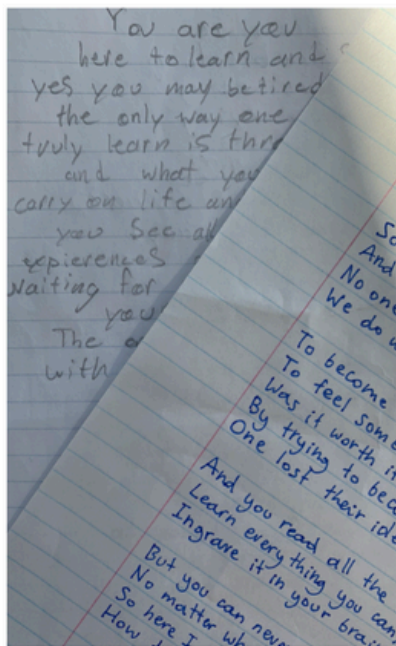 You are you
here to learn and
yes you may be tired
the only way one
truly learn is thr
and what you
carry on life an
you see al
expierences
Waiting for
you
The
with
So
And
No one
We do
To become
To feel some
Was it worth it
By trying to beca
One lost their ide
And you read all the
Learn everything you can,
Ingrave it in your brai
But you can neve
No matter wh
So here I
How